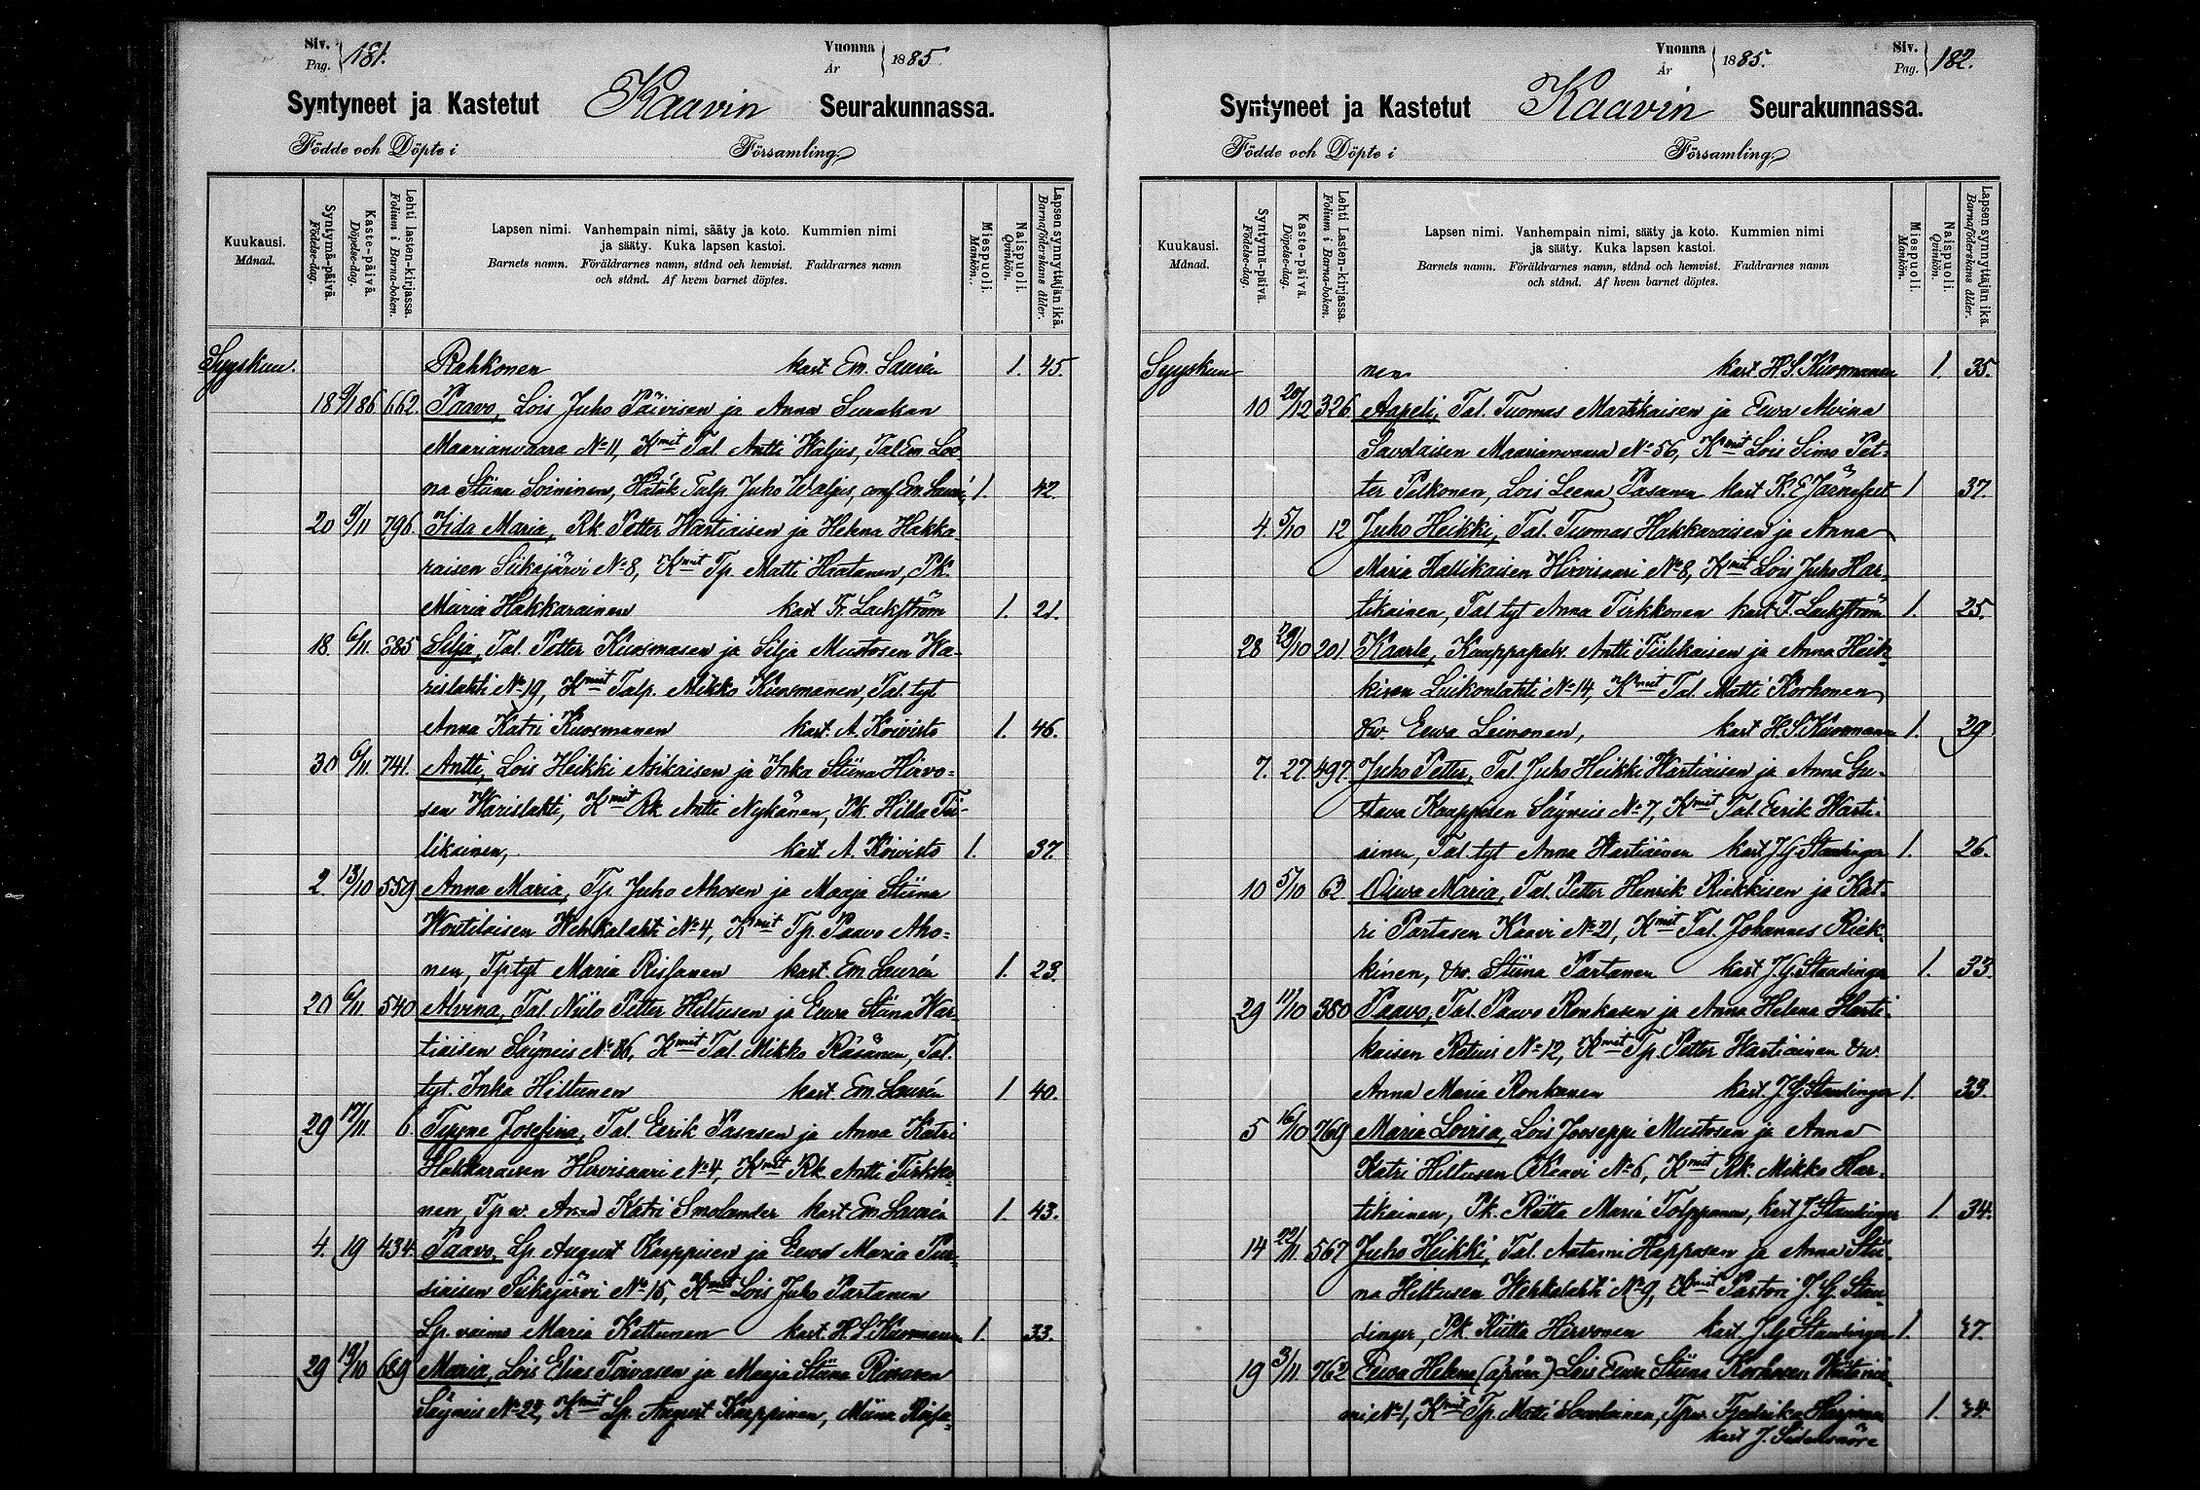 Siv. Pag. 181.
Vuonna År 1885.
Syntyneet ja Kastetut Kaavin Seurakunnassa.
Födde och Döpte i Församling
Kuukausi. Månad.
Syntymä-päivä. Födelse-dag.
Kaste-päivä. Döpelse-dag.
Lehti lasten-kirjassa. Folium i Barna-boken.
Lapsen nimi. Vanhempain nimi, sääty ja koto. Kummien nimi
ja sääty. Kuka lapsen kastoi.
Barnets namn. Föräldrarnes namn, stånd och hemvist. Faddrarnes namn
och stånd. Af hvem barnet döptes.
Miespuoli. Mankön.
Naispuoli. Qvinkön.
Lapsen synnyttäjän ikä. Barnaföderskans ålder.
Syyskuu. Rahkonen kast Em. Laurén 1. 45.
18 662. Paavo, Lois Juho Päivisen ja Anna Surakan
Maarianvaara No 11, Kmit Tal Antti Waljus, Tal Em. Lee-
na Stiina Soininen, Talp. Juho Waljus, Em. Laurén 1. 42.
20 9/11 796. Iida Maria, Rk Petter Wartiaisen ja Helena Hakka-
raisen Siikajärvi No 8, Kmit Tp. Matti Haatanen, Pk.
Maria Hakkarainen kast Fr. Lackström 1. 21.
18 6/11 685 Silja, Tal. Petter Kuosmasen ja Silja Mustosen Wa-
rislahti No 19, Kmit Talp. Mikko Kuosmanen, Tal. tyt
Anna Katri Kuosmanen kast. A. Koivisto 1. 46.
30 6/11 741. Antti, Lois Heikki Asikaisen ja Inka Stiina Hirvo-
sen Warislahti, Kmit Rk Antti Nykänen, Pk. Hilda Tii-
likainen, kast. A. Koivisto 1. 37.
2. 13/10 559 Anna Maria, Tp. Juho Ahosen ja Maaja Stiina
Woutilaisen Wehkalahti No 4, Kmit Tp. Paavo Aho-
nen, Tp tyt Maria Rissanen kast. Em. Laurén 1. 23.
20 6/11 540 Alvina, Tal. Niilo Petter Hiltusen ja Eeva Stiina War-
tiaisen Säyneis No 86, Kmit Tal. Mikko Räsänen, Tal.
tyt. Inka Hiltunen kast Em. Laurén 1 40.
29 17/11 6 Tyyne Josefina, Tal. Eerik Pasasen ja Anna Katri
Hakkaraisen Hirvisaari No 4, Kmit Rk. Antti Tirkko-
nen, Tp w. Anna Katri Smolander kast Em Laurén 1. 43.
4. 19 434. Paavo, Lp August Karppisen ja Eeva Maria Pur-
siaisen Siikajärvi No 15, Kmit Lois Juho Partanen
Lp. vaimo Maria Kettunen kast. H S Kuosmanen 1. 33.
29 19/10 689 Maria, Lois Elias Toivasen ja Maaja Stiina
Säyneis No 22, Kmit Lp. August Karppinen, Miina Rissa-
Vuonna År 1885.
Siv. Pag. 182.
Syntyneet ja Kastetut Kaavin Seurakunnassa.
Födde och Döpte i Församling
Kuukausi. Månad.
Syntymä-päivä. Födelse-dag.
Kaste-päivä. Döpelse-dag.
Lehti Lasten-kirjassa. Folium i Barna-boken.
Lapsen nimi. Vanhempain nimi, sääty ja koto. Kummien nimi
ja sääty. Kuka lapsen kastoi.
Barnets namn. Föräldrarnes namn, stånd och hemvist. Faddrarnes namn
och stånd. Af hvem barnet döptes.
Miespuoli. Mankön.
Naispuoli. Qvinkön.
Lapsen synnyttäjän ikä. Barnaföderskans ålder.
Syyskuu nen kast H S. Kuosmanen 1. 35.
10 20/12 326 Aapeli, Tal. Tuomas Martikaisen ja Eeva Alvina
Savolaisen Maarianvaara No 56, Kmit Lois Simo Pet-
ter Pelkonen, Lois Leena Pasanen kast K. E Järnefelt 1 37.
4. 5/10 12 Juho Heikki, Tal. Tuomas Hakkaraisen ja Anna
Maria Hallikaisen Hirvisaari No 8, Kmit Lois Juho Har-
tikainen, Tal tyt Anna Tirkkonen kast F. Lackström 1. 25.
28 29/10 201 Kaarle, Kauppapalv. Antti Tiilikaisen ja Anna Heik-
kisen Luikonlahti No 14, Kmit Tal. Matti Korhonen
Eeva Leinonen, kast H. S Kuosmanen 1. 29
7. 27 497 Juho Petter, Tal. Juho Heikki Wartiaisen ja Anna Gu-
stava Kauppisen Säyneis No 7, Kmit Tal. Eerik Warti-
ainen, Tal. tyt Anna Wartiainen kast J G Staudinger 1. 26.
10 5/10 62 Oiwa Maria, Tal. Petter Henrik Riekkisen ja Kat-
ri Partasen Kaavi No 21, Kmit Tal. Johannes Riek-
kinen, Stiina Partanen kast J G. Staudinger 1. 33.
29 11/10 380 Paavo, Tal. Paavo Ronkasen ja Anna Helena Harti-
kaisen Retuis No 12, Kmit Tp. Petter Hartiainen
Anna Maria Ronkanen kast. J. G Staudinger 1. 33.
5 16/10 769 Maria Lovisa, Lois Jooseppi Mustosen ja Anna
Katri Hiltusen Kaavi No 6, Kmit Rk. Mikko Har-
tikainen, Pk. Riitta Maria Tolppanen, kast J. Staudinger 1. 34.
14 22/11 567 Juho Heikki, Tal. Aatami Happosen ja Anna Stii-
na Hiltusen Wehkalahti No 9, Kmit Pastori J. G. Stau-
dinger, Pk Riitta Hirvonen kast. J G Staudinger 1.
19 3/11 762 Eeva Helena (äpärä) Lois Eeva Stiina Korhosen
No 1, Kmit Tp. Matti Savolainen, Tpw. Fredrika 1.
kast J. Sidensnöre